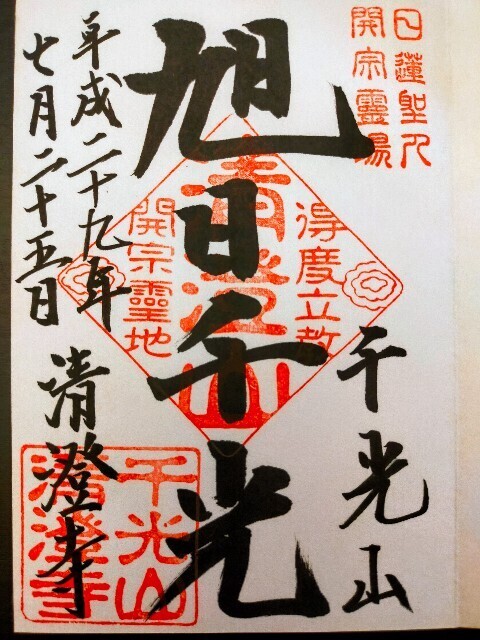 日蓮聖人
開宗靈場
千光山
旭日千光
得度立教
清澄山
開宗靈地
平成二十九年
七月二十五日
清澄寺
千光山
清澄寺